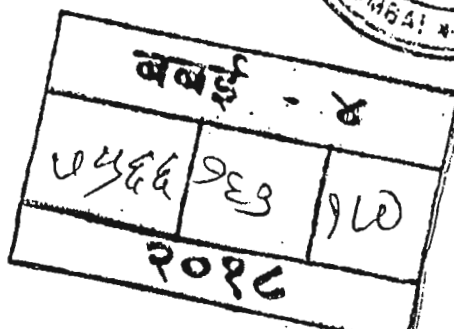 MBAI *
बबई - ४
७५६६ १६३ १८०
२०१८